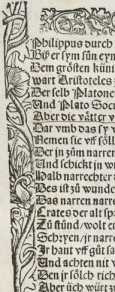 Philippus durch
By er sym sun eyn
Dem grösten künn
wart Aristoteles
Der selb Platonem
Und Plato Socr
Aber die vätter v
Dar vmb das sy v
Nemen sie vff söll
Der jn zům narren
Und schickt jn w
Halb narrechter
Des ist zů wunder
Das narren narre
Crates der alt sp
Zů stund / wolt e
Schryen / jr narre
Jr hant vff gůt sa
Und achten nit v
Den jr sölch rich
Aber üch würt z